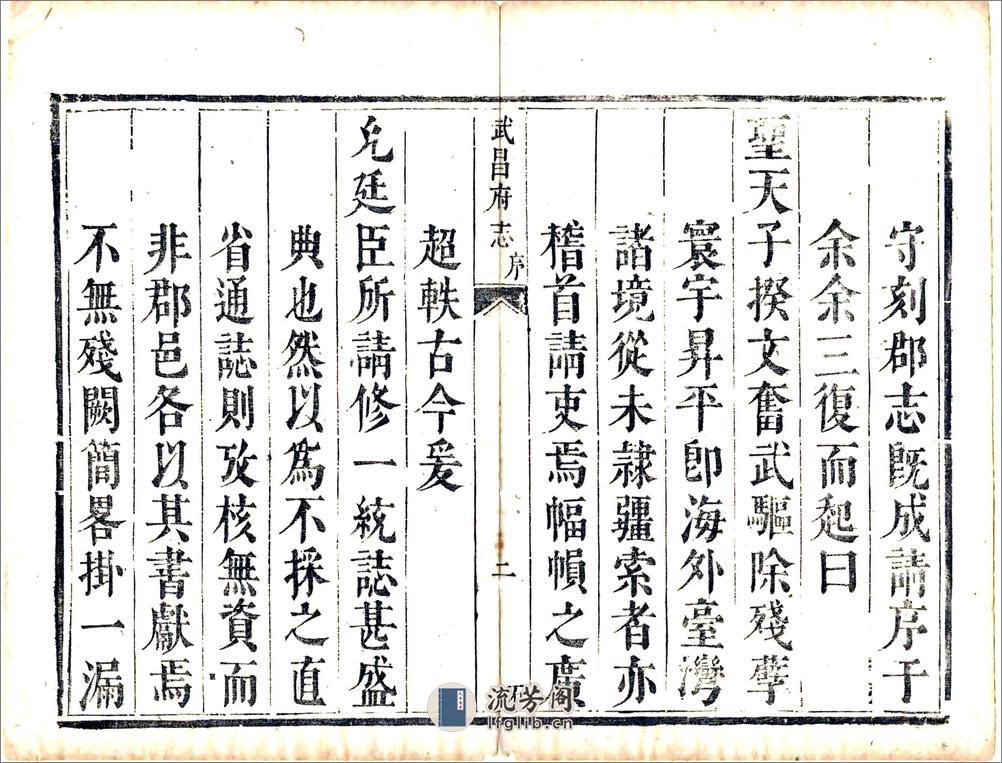 守刻郡志旣成請序于
余余三復而起曰
聖天子揆文奮武驅除殘孽
寰宇昇平卽海外臺灣
諸境從未隷疆索者亦
稽首請吏焉幅幀之廣
武昌府志 序 二
超軼古今爰
允廷臣所請修一統誌甚盛
典也然以爲不採之直
省通誌則攷核無資而
非郡邑各以其書獻焉
不無殘闕簡畧掛一漏
流芳阁
lfglib.cn